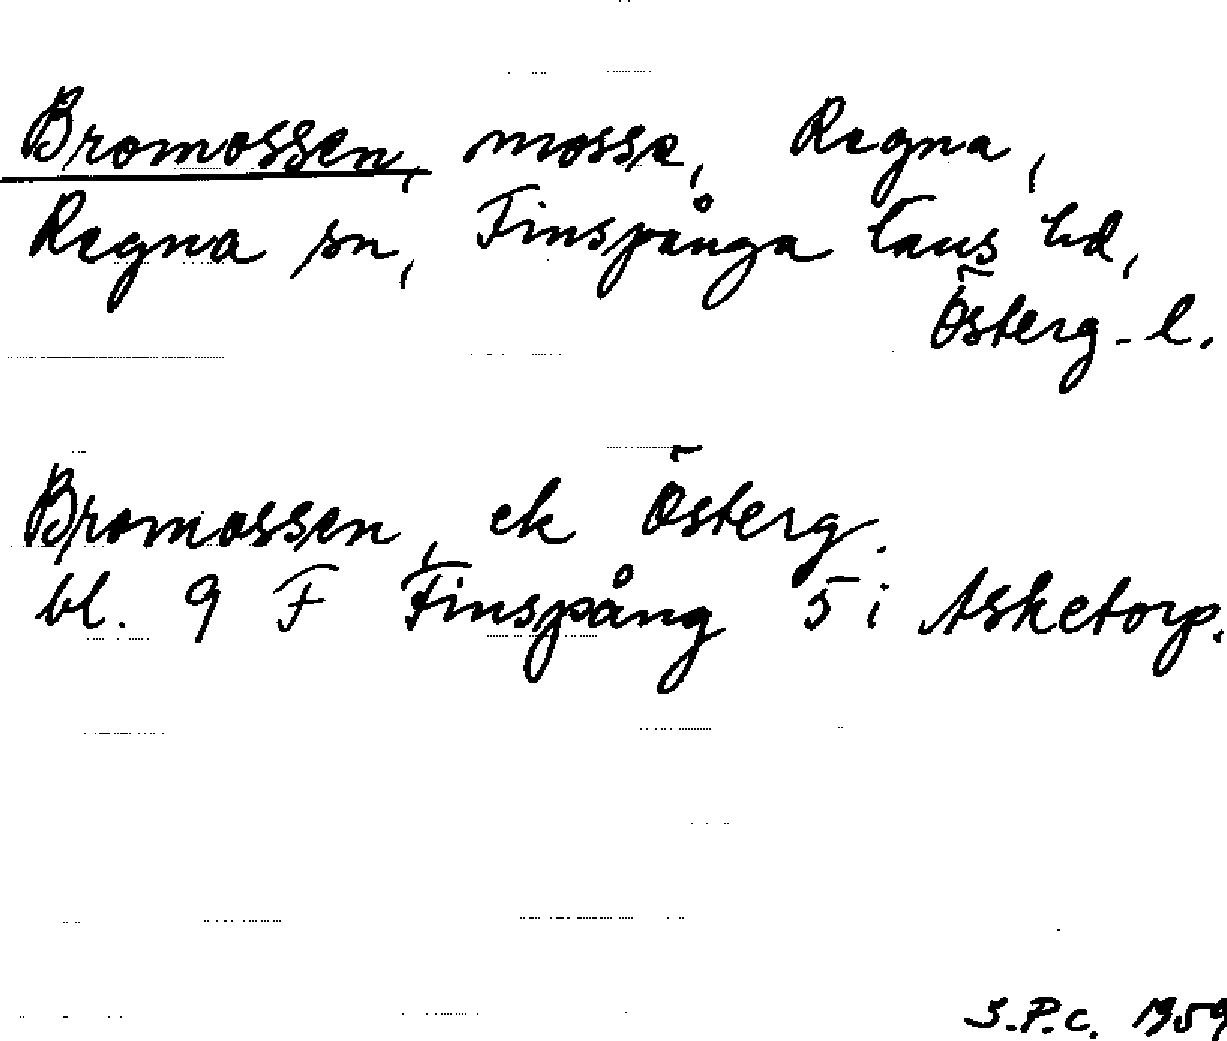 Bromossen, mosse, Regna,
Regna sn, Finspånga läns hd,
Österg. l.
Bromossen, ek Österg.
bl. 9 F Finspång 5 i Asketorp.
S.P.C. 1959